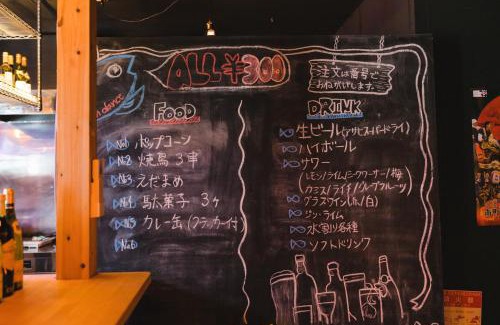 ALL ¥300
注文は番号で
おねがいします。
dance
FOOD
No1 ポップコーン
No2 焼鳥 3串
No3 えだまめ
No4 駄菓子 3ヶ
No5 カレー缶(クラッカー付)
No6
DRINK
生ビール(アサヒスーパードライ)
ハイボール
サワー
(レモン/ライム/シークワーサー/梅
カシス/ライチ/グレープフルーツ)
グラスワイン(赤/白)
ジン・ライム
水割り各種
ソフトドリンク